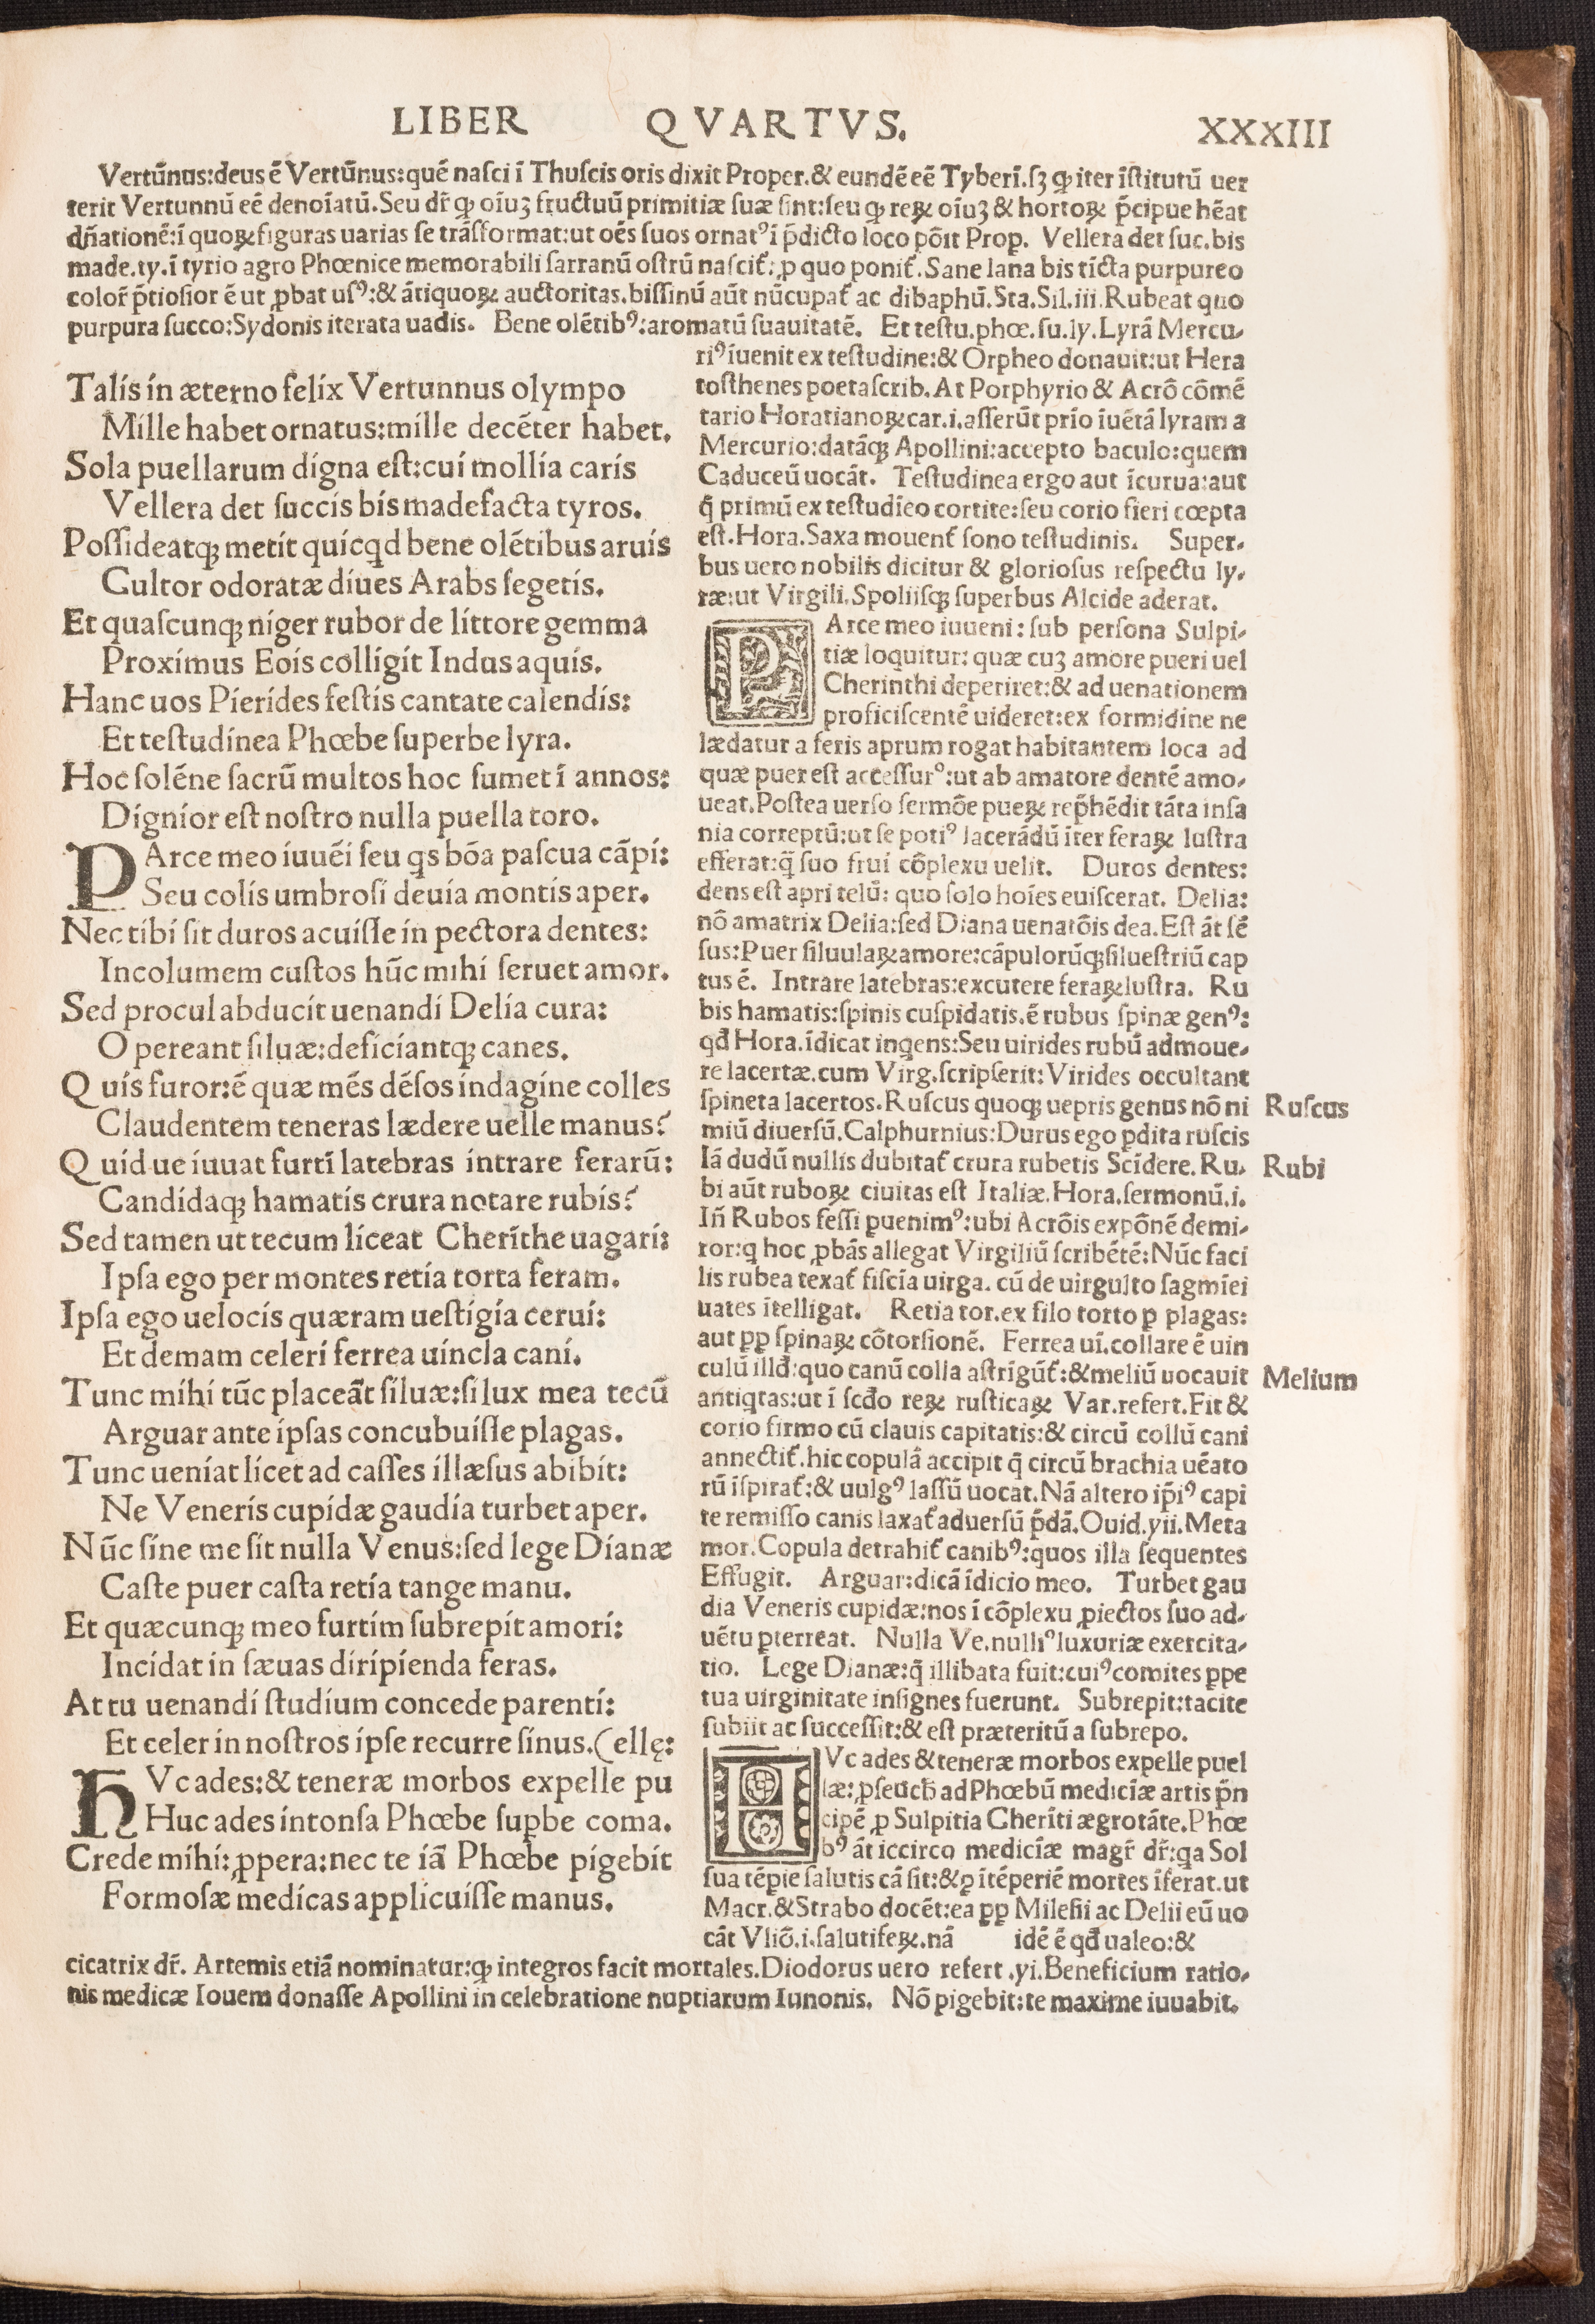 LIBER QVARTVS. XXXIII
Vertūnus:deus ē Vertūnus:quē nasci ī Thuscis oris dixit Proper.& eundē eē Tyberī.sꝫ ꝙ iter īstitutū uer
terit Vertunnū eē denoīatū.Seu dr̄ ꝙ oīuꝫ fructuū primitiæ suæ sint:seu ꝙ reꝝ oīuꝫ & hortoꝝ p̄cipue hēat
dn̄ationē:ī quoꝝ figuras uarias se trāsformat:ut oēs suos ornatꝰ ī p̄dicto loco pōit Prop. Vellera det suc.bis
made.ty.ī tyrio agro Phœnice memorabili sarranū ostrū nascit̃: ꝓ quo ponit̃.Sane lana bis tīcta purpureo
color̄ p̄tiosior ē ut ꝓbat usꝰ:& ātiquoꝝ auctoritas.bissinū aūt nūcupat̃ ac dibaphū.Sta.Sil.iii.Rubeat quo
purpura succo:Sydonis iterata uadis. Bene olētibꝰ:aromatū suauitatē. Et testu.phœ.su.ly.Lyrā Mercu-
riꝰ īuenit ex testudine:& Orpheo donauit:ut Hera
tosthenes poeta scrib.At Porphyrio & Acrō cōmē
tario Horatianoꝝ car.i.asserūt prīo īuētā lyram a
Mercurio:datāqꝫ Apollini:accepto baculo:quem
Caduceū uocāt. Testudinea ergo aut īcurua:aut
q̄ primū ex testudīeo cortite:seu corio fieri cœpta
est.Hora.Saxa mouent̃ sono testudinis. Super-
bus uero nobilis dicitur & gloriosus respectu ly-
ræ:ut Virgili.Spoliisqꝫ superbus Alcide aderat.
Talis in æterno felix Vertunnus olympo
Mille habet ornatus:mille decēter habet.
Sola puellarum digna est:cui mollia caris
Vellera det succis bis madefacta tyros.
Possideatqꝫ metit quicqd bene olētibus aruis
Cultor odoratæ diues Arabs segetis.
Et quascunqꝫ niger rubor de littore gemma
Proximus Eois colligit Indus aquis.
Hanc uos Pierides festis cantate calendis:
Et testudinea Phœbe superbe lyra.
Hoc solēne sacrū multos hoc sumet ī annos:
Dignior est nostro nulla puella toro.
PArce meo iuuēi seu qs bōa pascua cāpi:
Seu colis umbrosi deuia montis aper.
Nec tibi sit duros acuisse in pectora dentes:
Incolumem custos hūc mihi seruet amor.
Sed procul abducit uenandi Delia cura:
O pereant siluæ:deficiantqꝫ canes.
Quis furor:ē quæ mēs dēsos indagine colles
Claudentem teneras lædere uelle manus?
Quid ue iuuat furtī latebras intrare ferarū:
Candidaqꝫ hamatis crura notare rubis?
Sed tamen ut tecum liceat Cherīthe uagari:
Ipsa ego per montes retia torta feram.
Ipsa ego uelocis quæram uestigia cerui:
Et demam celeri ferrea uincla cani.
Tunc mihi tūc placeāt siluæ:si lux mea tecū
Arguar ante ipsas concubuisse plagas.
Tunc ueniat licet ad casses illæsus abibit:
Ne Veneris cupidæ gaudia turbet aper.
Nūc sine me sit nulla Venus:sed lege Dianæ
Caste puer casta retia tange manu.
Et quæcunqꝫ meo furtim subrepit amori:
Incidat in sæuas diripienda feras.
At tu uenandi studium concede parenti:
Et celer in nostros ipse recurre sinus.(ellę:
HVc ades:& teneræ morbos expelle pu
Huc ades intonsa Phœbe suꝑbe coma.
Crede mihi:ꝓpera:nec te iā Phœbe pigebit
Formosæ medicas applicuisse manus.
PArce meo iuueni: sub persona Sulpi-
tiæ loquitur: quæ cuꝫ amore pueri uel
Cherinthi deperiret:& ad uenationem
proficiscentē uideret:ex formidine ne
lædatur a feris aprum rogat habitantem loca ad
quæ puer est accessurꝰ:ut ab amatore dentē amo-
ueat.Postea uerso sermōe pueꝝ rep̄hēdit tāta insa
nia correptū:ut se potiꝰ lacerādū īter feraꝝ lustra
efferat:q̄ suo frui cōplexu uelit. Duros dentes:
dens est apri telū: quo solo hoīes euiscerat. Delia:
nō amatrix Delia:sed Diana uenatōis dea.Est āt sē
sus:Puer siluulaꝝ amore:cāpulorūqꝫ siluestriū cap
tus ē. Intrare latebras:excutere feraꝝ lustra. Ru
bis hamatis:spinis cuspidatis.ē rubus spinæ genꝰ:
qđ Hora.īdicat inqens:Seu uirides rubū admoue-
re lacertæ.cum Virg.scripserit:Virides occultant
spineta lacertos.Ruscus quoqꝫ uepris genus nō ni
Ruscus
miū diuersū.Calphurnius:Durus ego ꝑdita ruscis
Iā dudū nullis dubitat̃ crura rubetis Scīdere. Ru-
Rubi
bi aūt ruboꝝ ciuitas est Italiæ.Hora.sermonū.i.
In̄ Rubos fessi ꝑuenimꝰ:ubi Acrōis expōnē demi-
ror:q hoc ꝓbās allegat Virgiliū scribētē:Nūc faci
lis rubea texat̃ fiscīa uirga. cū de uirgulto sagmīei
uates ītelligat. Retia tor.ex filo torto ꝑ plagas:
aut ꝓꝑ spinaꝝ cōtorsionē. Ferrea uī.collare ē uin
culū illđ:quo canū colla astrīgūt̃:&meliū uocauit
Melium
antiqtas:ut ī scđo reꝝ rusticaꝝ Var.refert.Fit &
corio firmo cū clauis capitatis:& circū collū cani
annectit̃.hic copulā accipit q̄ circū brachia uēato
rū īspirat̃:& uulgꝰ lassū uocat.Nā altero ip̄iꝰ capi
te remisso canis laxat̃ aduersū p̄dā.Ouid.yii.Meta
mor.Copula detrahit̃ canibꝰ:quos illa sequentes
Effugit. Arguar:dicā īdicio meo. Turbet gau
dia Veneris cupidæ:nos ī cōplexu ꝓiectos suo ad-
uētu ꝑterreat. Nulla Ve.nulliꝰ luxuriæ exercita-
tio. Lege Dianæ:q̄ illibata fuit:cuiꝰ comites ꝑpe
tua uirginitate insignes fuerunt. Subrepit:tacite
subiit ac successit:& est præteritū a subrepo.
HVc ades & teneræ morbos expelle puel
læ: ꝓseuch̄ ad Phœbū medicīæ artis p̄n
cipē ꝓ Sulpitia Cherīti ægrotāte.Phœ
bꝰ āt iccirco medicīæ magr̄ dr̄:qa Sol
sua tēꝑie salutis cā sit:&ꝑ ītēperiē mortes īferat.ut
Macr.&Strabo docēt:ea ꝓꝑ Milesii ac Delii eū uo
cāt Vliō.i.salutifeꝝ.nā idē ē qđ ualeo:&
cicatrix dr̄. Artemis etiā nominatur:ꝙ integros facit mortales.Diodorus uero refert .yi.Beneficium ratio-
nis medicæ Iouem donasse Apollini in celebratione nuptiarum Iunonis. Nō pigebit:te maxime iuuabit.